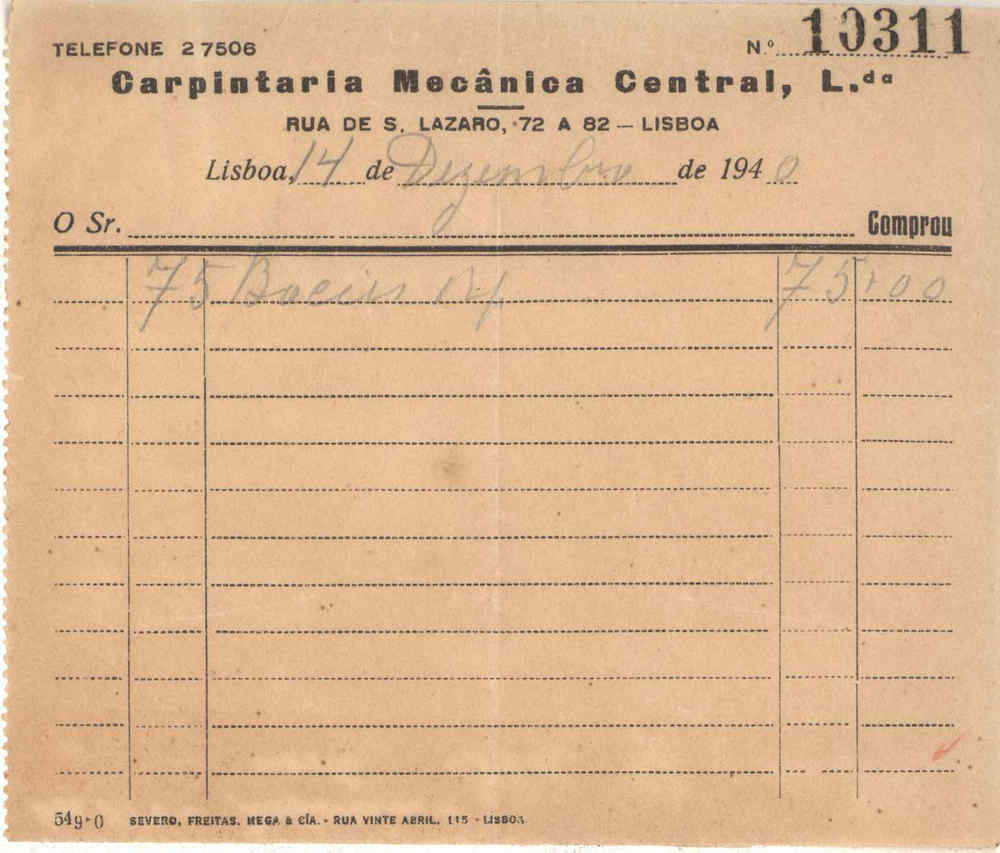 TELEFONE 27506 N.º 10311
Carpintaria Mecânica Central, L.da
RUA DE S. LAZARO, 72 A 82 — LISBOA
Lisboa, 14 de Dezembro de 1940
O Sr. Comprou
75 75,00
549-0 SEVERO, FREITAS, MEGA & CÍA. - RUA VINTE ABRIL, 115 - LISBOA